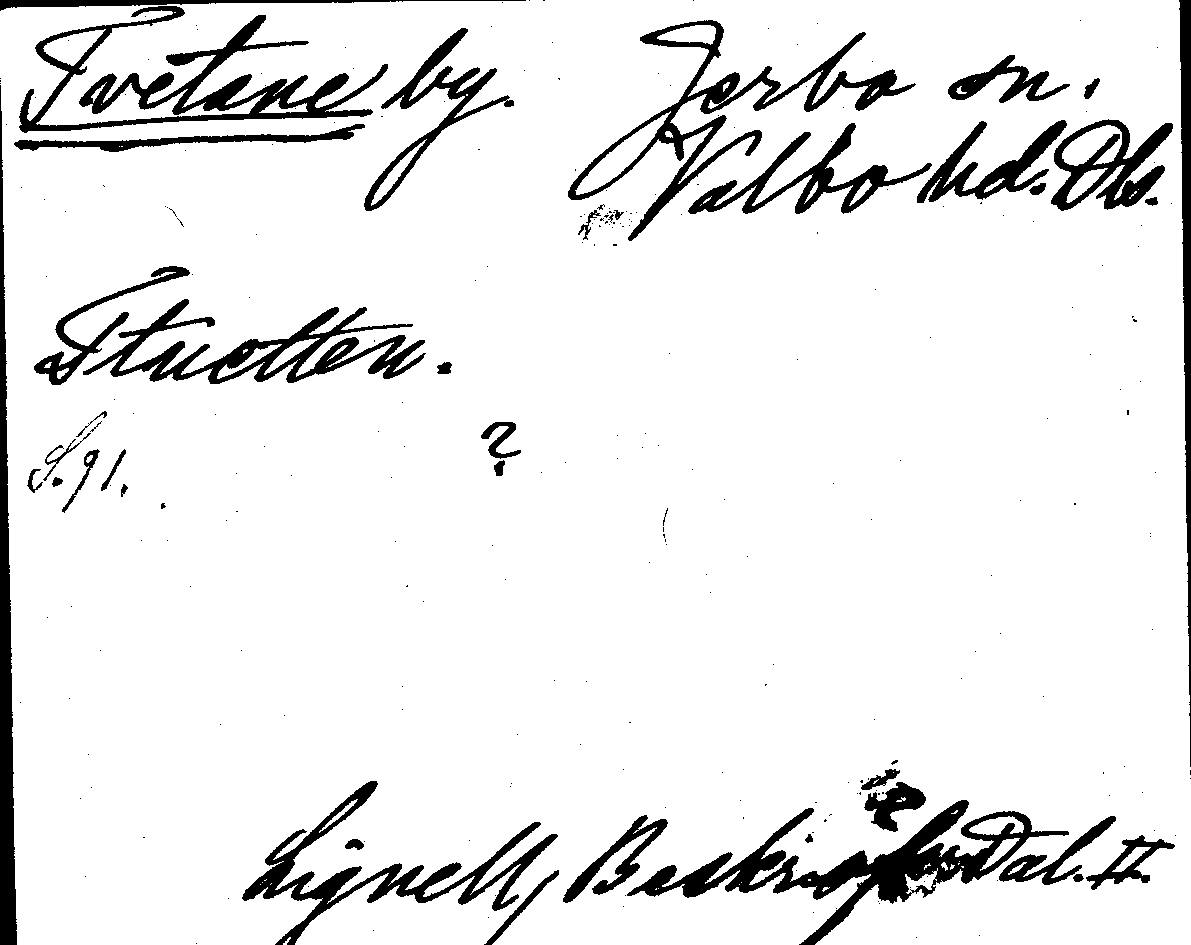 Tvetane by. Jerbo sn.
Valbo hd. Dls.
Stuotten.
S. 91. ?
Lignell, Beskr. Dal. II.